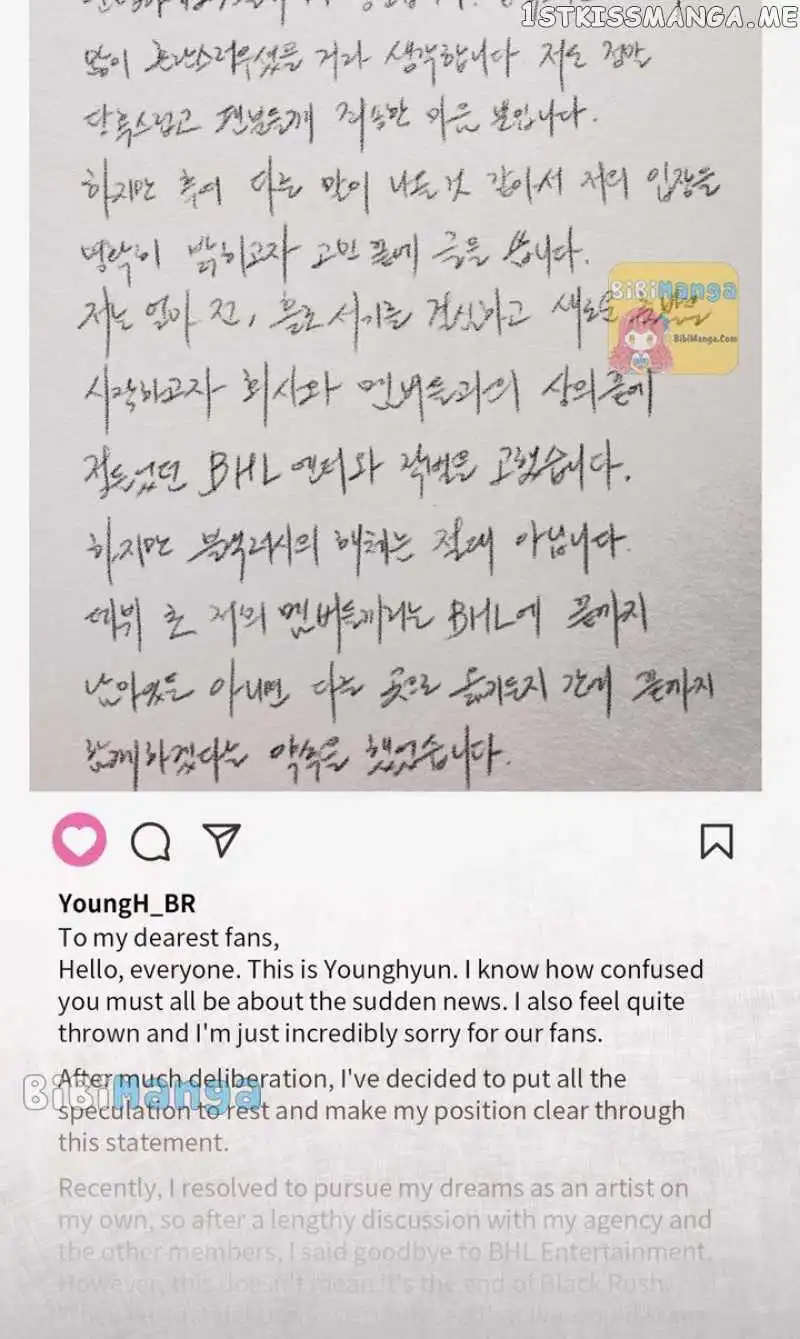 1STKISSMANGA.ME
많이 혼란스러우셨을 거라 생각합니다 저도 정말
당혹스럽고 팬분들께 죄송한 마음 뿐입니다.
하지만 혹여 다른 말이 나올것 같아서 저의 입장을
명확히 밝히고자 고민 끝에 글을 씁니다.
저는 얼마 전, 홀로서기를 결심하고 새로운 출발을
BiBiManga
BibiManga.Com
시작하고자 회사와 멤버들과의 상의끝에
정들었던 BHL 엔터와 작별을 고했습니다.
하지만 블랙러시의 해체는 절대 아닙니다.
데뷔 초 저의 멤버들끼리는 BHL에 끝까지
남아있든 아니면 다른 곳으로 옮기든지 간에 끝까지
함께하겠다는 약속을 했었습니다.
YoungH_BR
To my dearest fans,
Hello, everyone. This is Younghyun. I know how confused
you must all be about the sudden news. I also feel quite
thrown and I'm just incredibly sorry for our fans.
After much deliberation, I've decided to put all the
BiBiManga
speculation to rest and make my position clear through
this statement.
Recently, I resolved to pursue my dreams as an artist on
my own, so after a lengthy discussion with my agency and
the other members, I said goodbye to BHL Entertainment.
However, this doesn't mean it's the end of Black Rush.